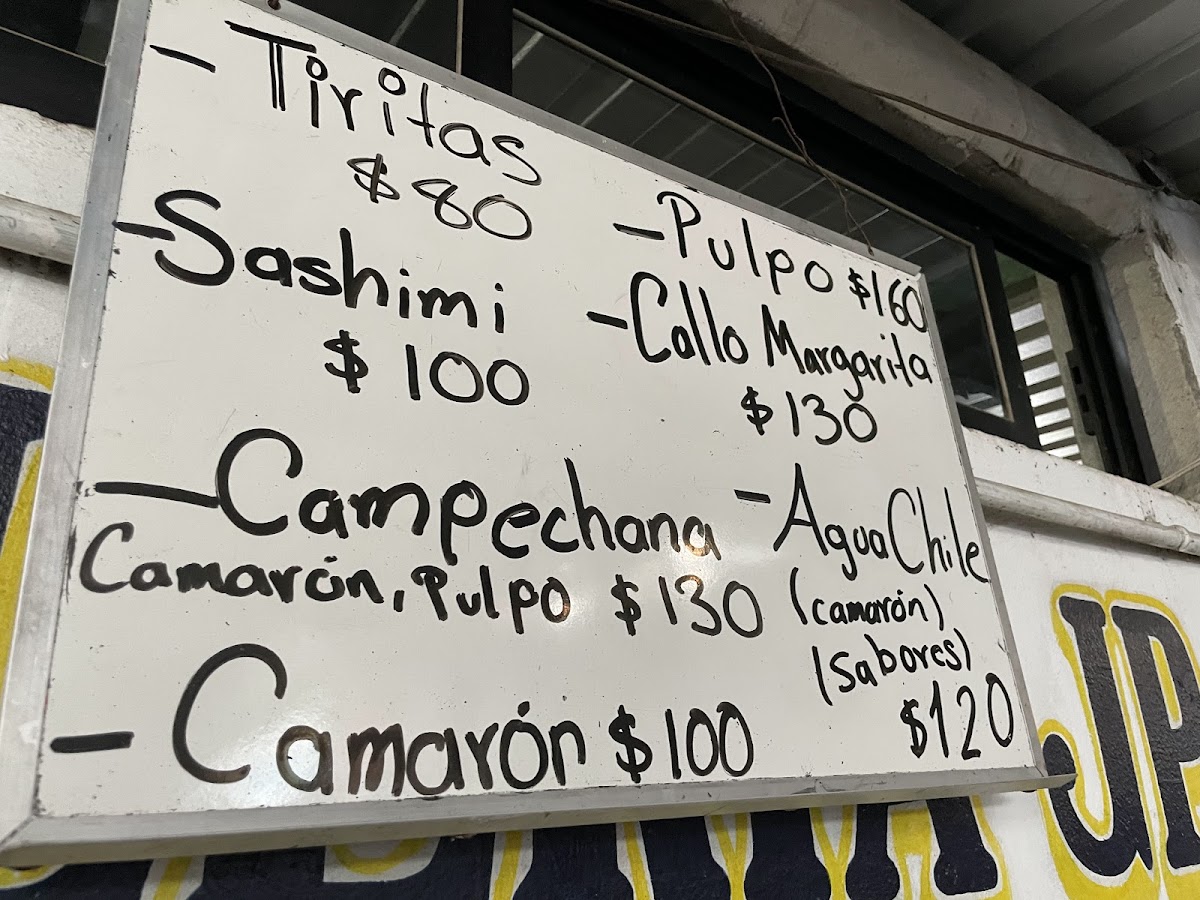 - Tiritas
$80
- Sashimi
$100
- Campechana
Camarón, Pulpo $130
- Camarón $100
- Pulpo $160
- Callo Margarita
$130
- AguaChile
(camarón)
(sabores)
$120
JP